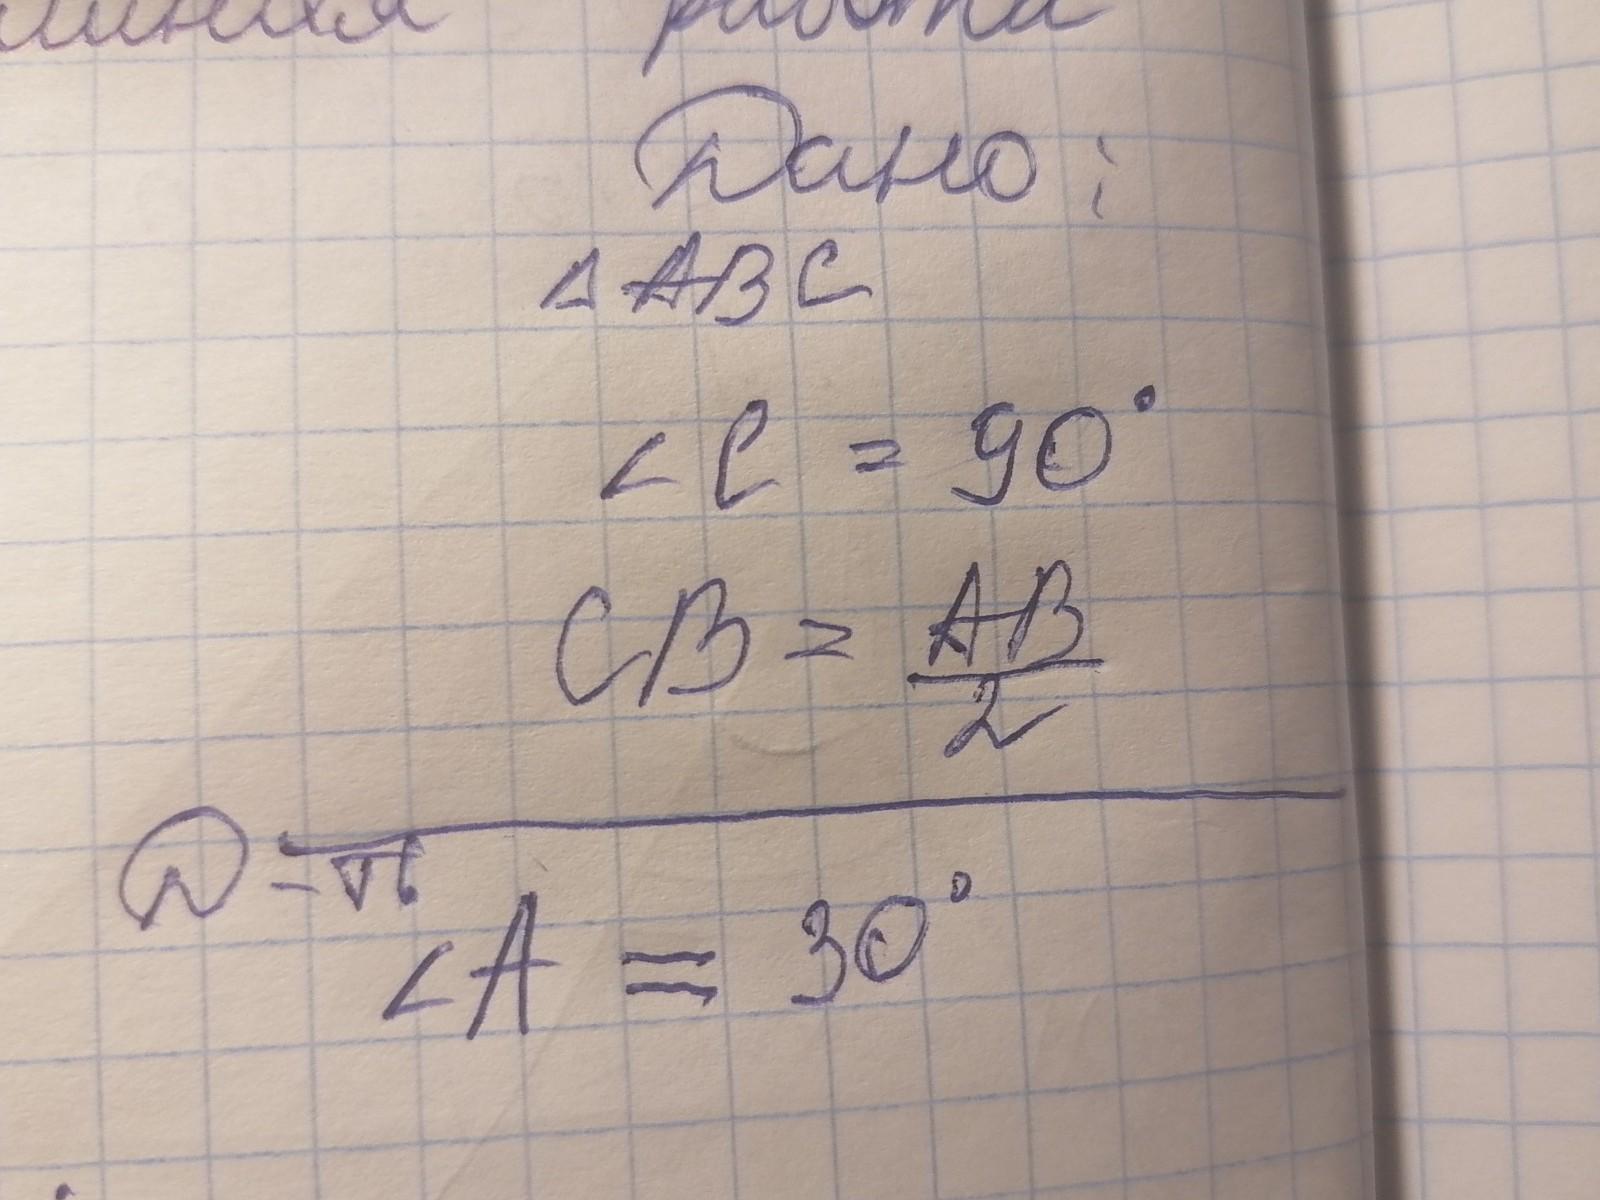 работа
Дано:
△ABC
∠C = 90°
CB = AB/2
Д-ть
∠A = 30°